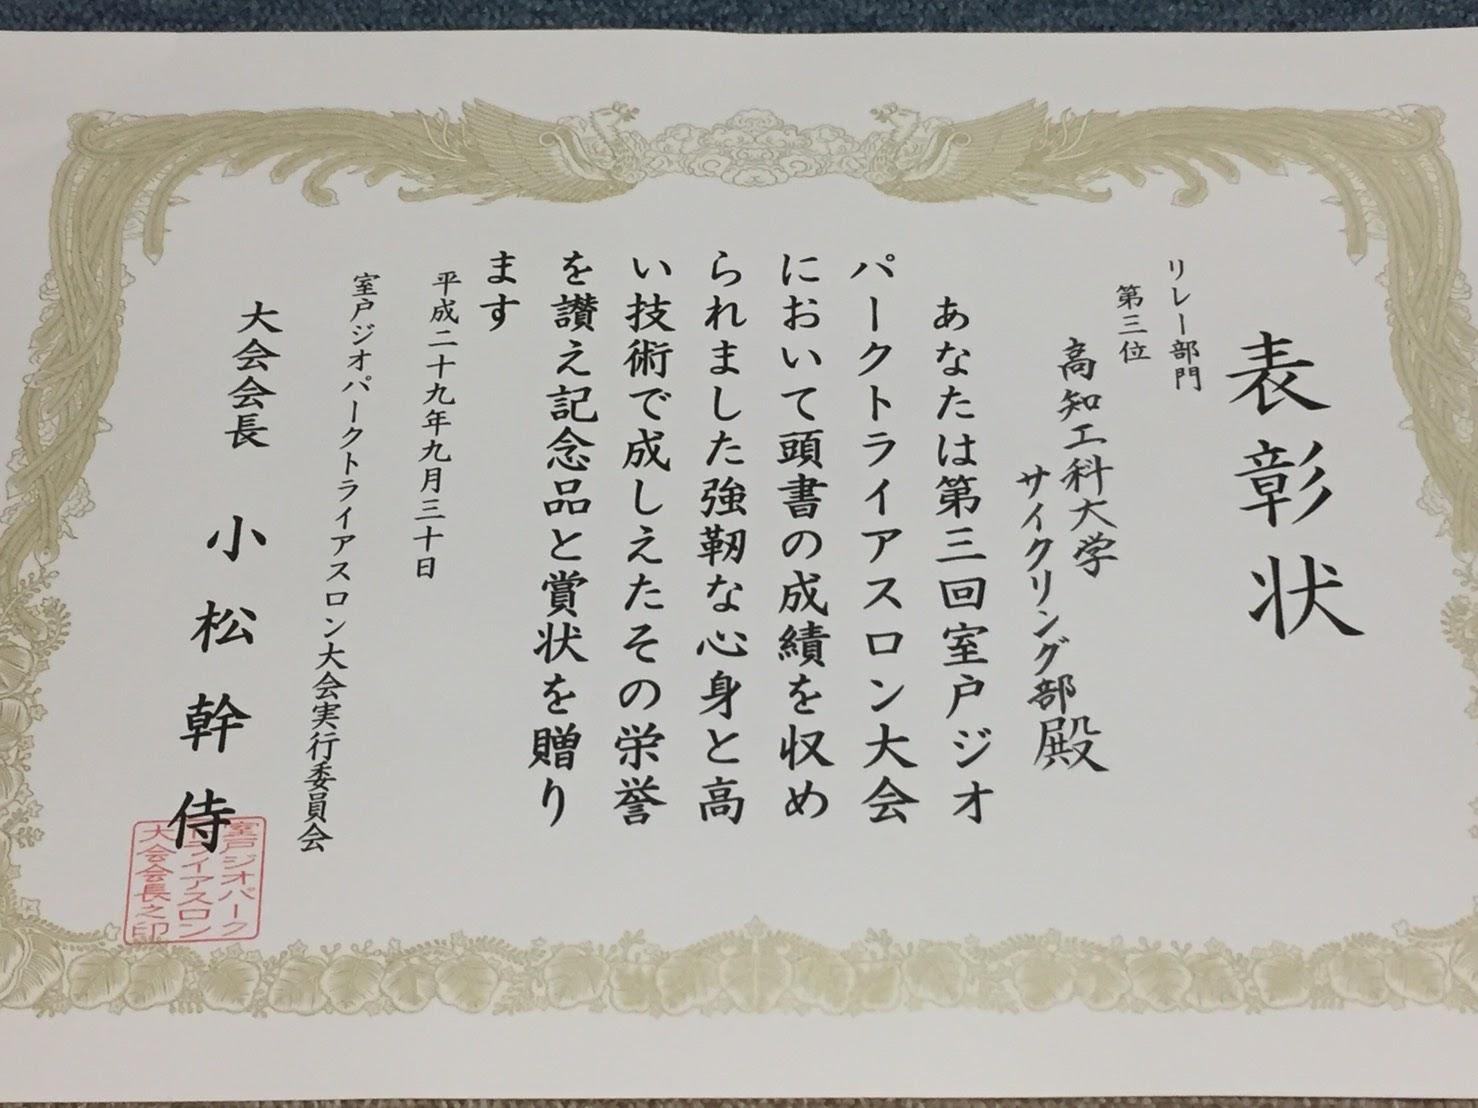 表彰状
リレー部門
第三位
高知工科大学
サイクリング部殿
あなたは第三回室戸ジオ
パークトライアスロン大会
において頭書の成績を収め
られました強靭な心身と高
い技術で成しえたその栄誉
を讃え記念品と賞状を贈り
ます
平成二十九年九月三十日
室戸ジオパークトライアスロン大会実行委員会
大会会長 小松幹侍
室戸ジオパーク
トライアスロン
大会会長之印